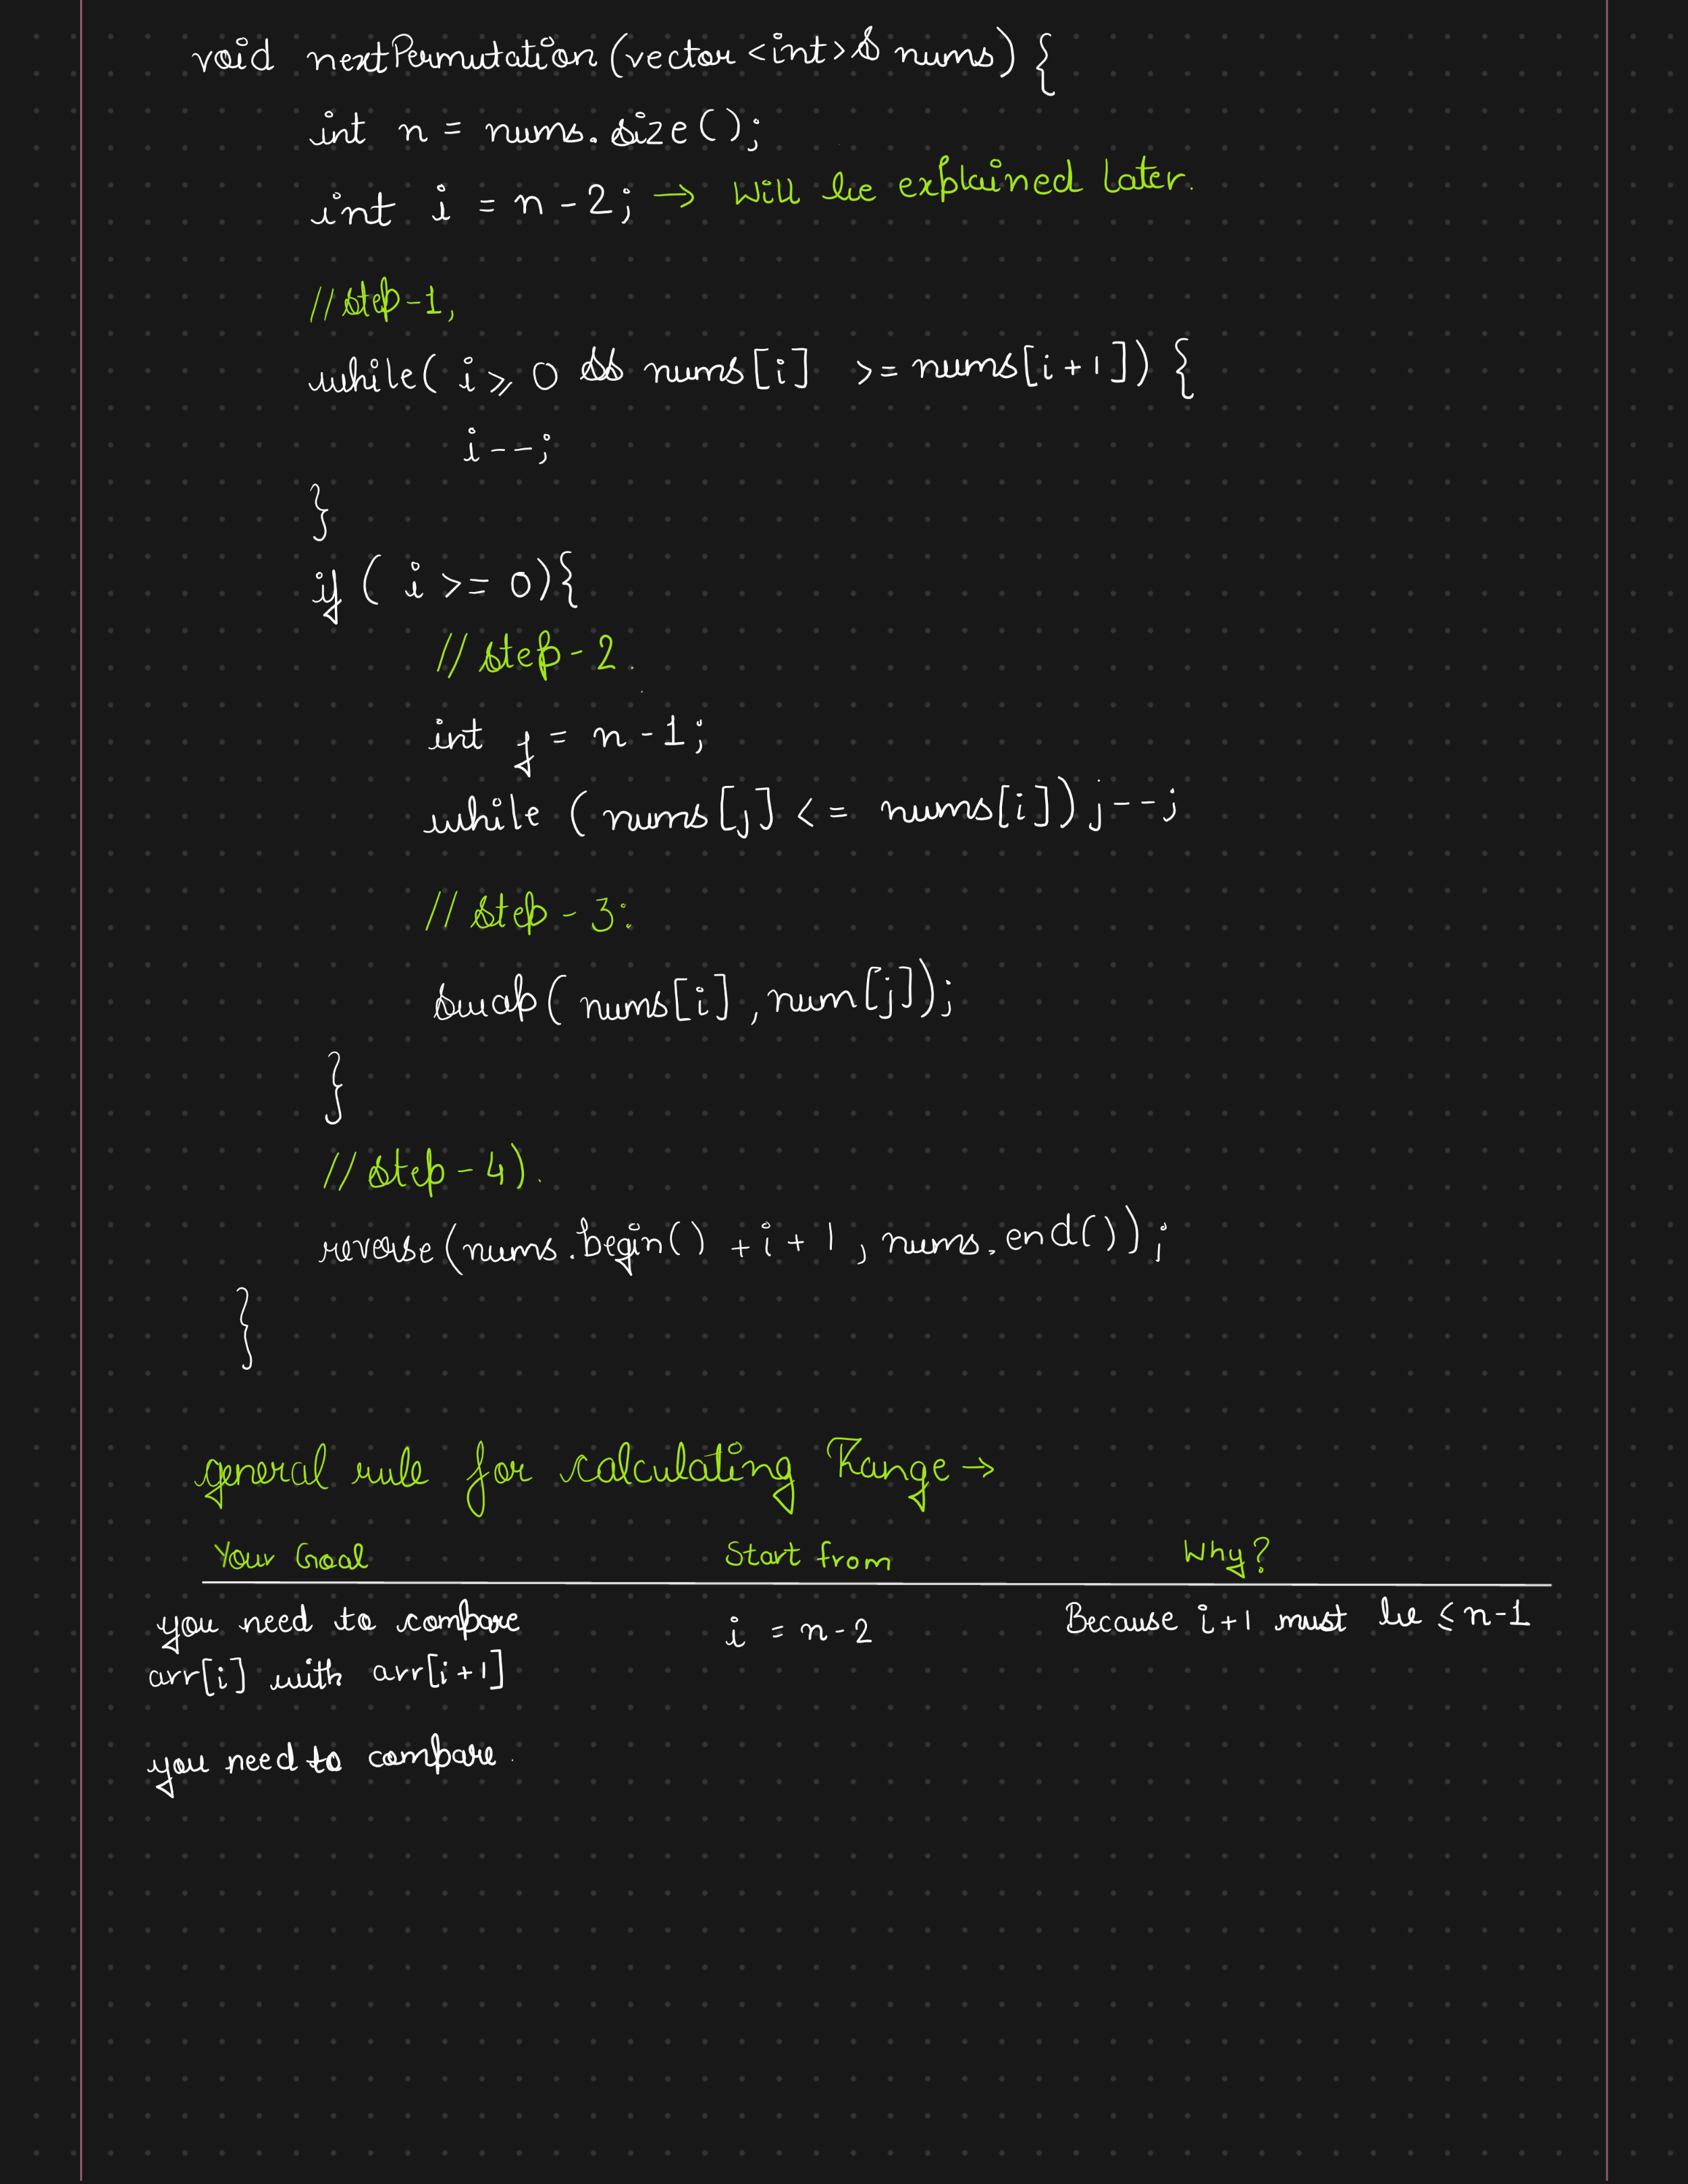 void nextPermutation (vector <int>& nums) {
int n = nums.size();
int i = n-2; → Will be explained later.
//step-1,
while( i ⩾ 0 && nums[i] >= nums[i+1]) {
i--;
}
if ( i >= 0){
// step-2.
int j = n-1;
while ( nums[j] <= nums[i]) j--;
// step-3:
swap( nums[i], num[j]);
}
// step-4).
reverse(nums.begin() + i + 1, nums.end());
}
general rule for calculating Range →
Your Goal Start from Why?
you need to compare i = n-2 Because i+1 must be ≤ n-1
arr[i] with arr[i+1]
you need to compare.